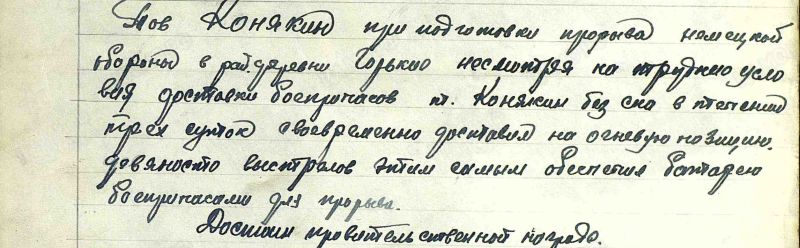 Тов Конякин при подготовки прорыва немецкой
обороны в рай. деревни Горькио несмотря на трудно усло
вия доставки боеприпасов т. Конякин без сна в птечении
трех суток своевременно доставил на огневую позицию.
девяносто выстрелов этим самым обеспечил батарею
боеприпасами для прорыва.
Достоин правительственной награде.